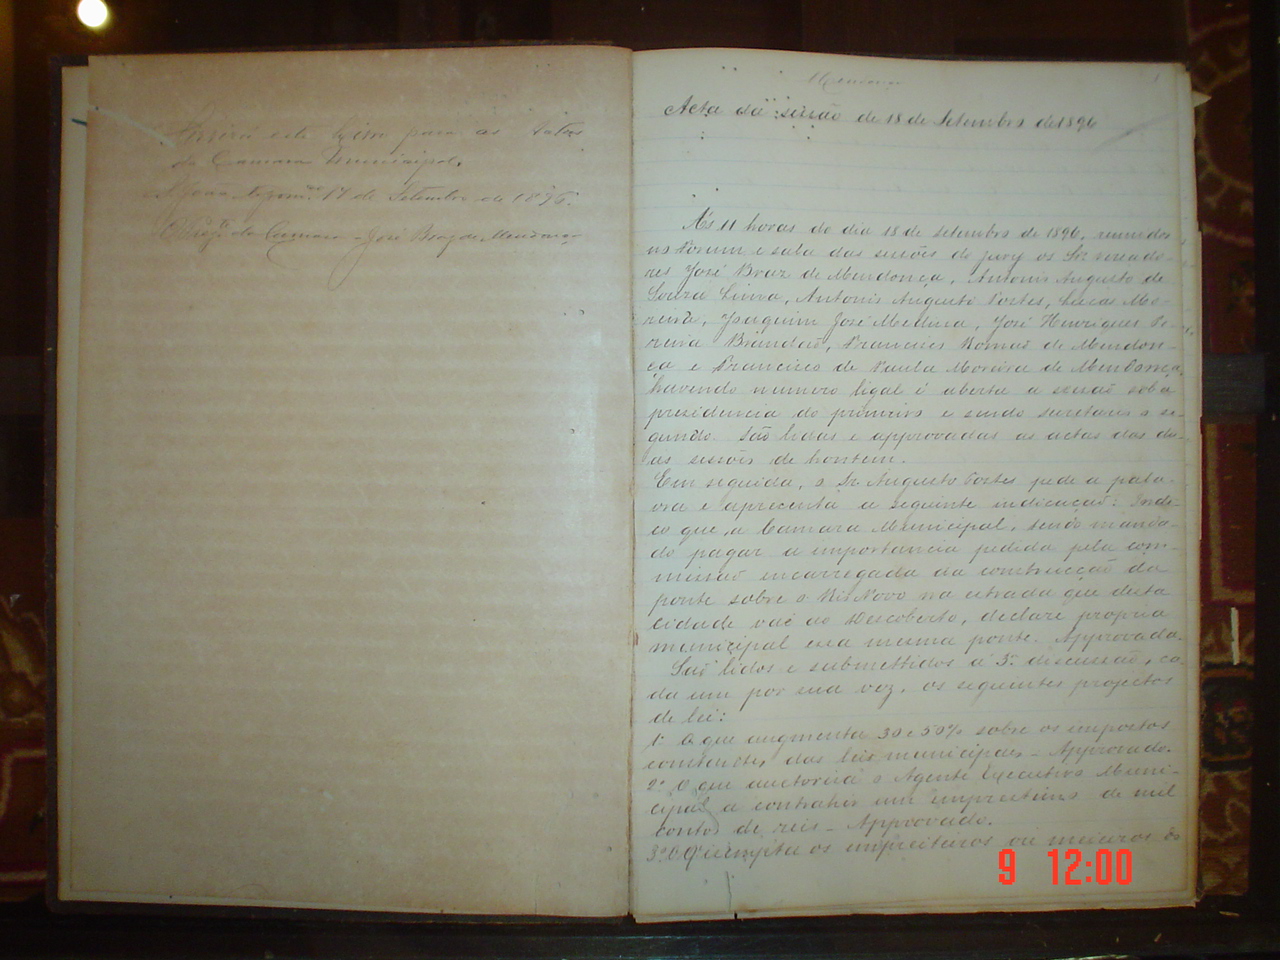 Servirá este livro para as actas
da Camara Municipal.
17 de Setembro de 1896.
da Camara - José Braz de Mendonça
Mendonça
Acta da sessão de 18 de Setembro de 1896
Ás 11 horas do dia 18 de setembro de 1896, reunidos
no Forum e sala das sessões do jury os Srs vereado-
res José Braz de Mendonça, Antonio Augusto de
Souza Lima, Antonio Augusto Portes, Lucas Mo-
reira, Joaquim José Medina, José Henriques Pe-
reira Brandão, Francisco Romão de Mendon-
ça e Francisco de Paula Moreira de Mendonça,
havendo numero legal é aberta a sessão sob a
presidencia do primeiro e sendo secretario o se-
gundo. São lidas e approvadas as actas das du-
as sessões de hontem.
Em seguida, o Sr. Augusto Portes pede a pala-
vra e apresenta a seguinte indicação: Indi-
co que, a Camara Municipal, sendo manda-
do pagar a importancia pedida pela com-
missão encarregada da construcção da
ponte sobre o Rio Novo na estrada que desta
cidade vae ao Descoberto, declare propria
municipal essa mesma ponte. Approvada.
São lidos e submettidos á 3ª discussão, ca-
da um por sua vez, os seguintes projectos
de lei:
1º O que augmenta 30 e 50% sobre os impostos
constantes das leis municipaes - Approvado.
2º O que auctorisa o Agente Executivo Muni-
cipal a contrahir um emprestimo de mil
contos de reis - Approvado.
3º O q' isempta os empreiteiros ou meieiros do
9 12:00